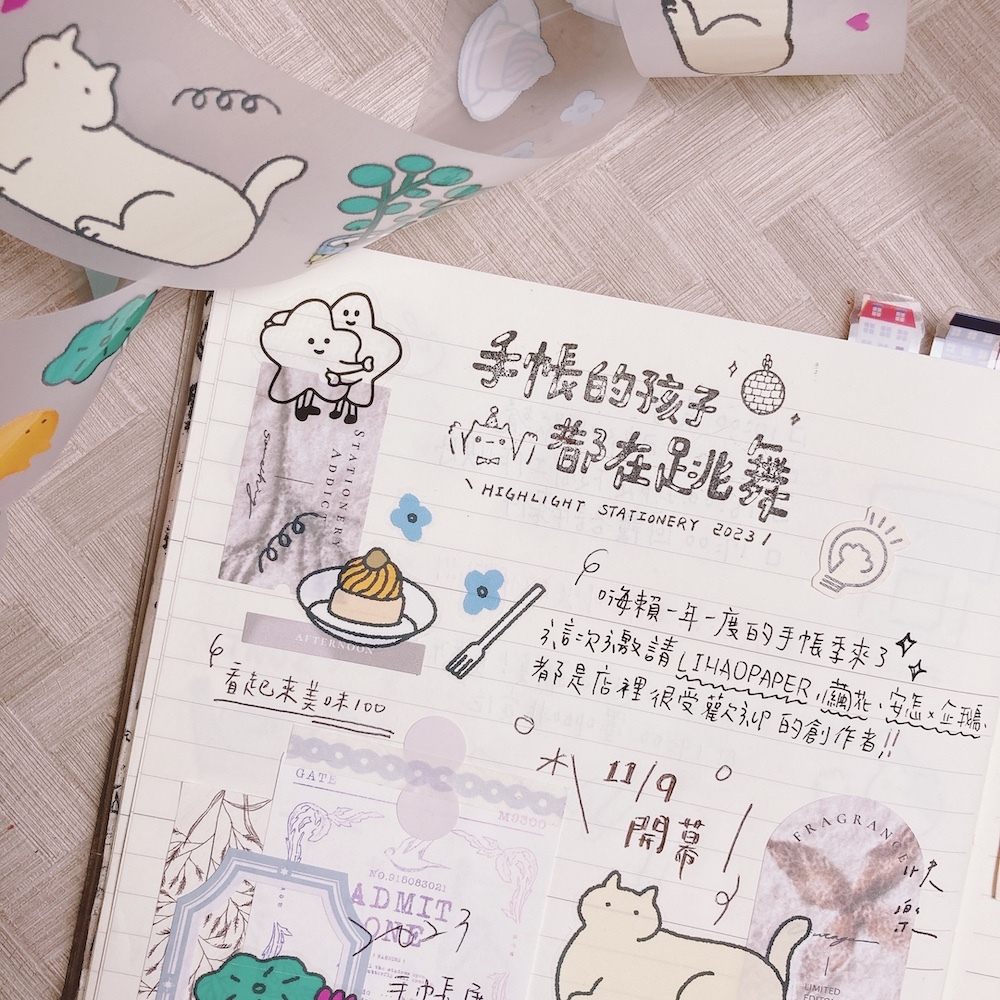 手帳的孩子
都在跳舞
\ HIGHLIGHT STATIONERY 2023 /
STATIONERY
ADDICT
嗨賴一年一度的手帳季來了
這次邀請 LIHAOPAPER、小繭花、安怎x企鵝
都是店裡很受歡迎的創作者!!
AFTERNOON
看起來美味100
11/9
開幕
GATE
M9300
NO.915083021
ADMIT
ONE
2023
手帳展
FRAGRANCE
快
樂
LIMITED
EDITION